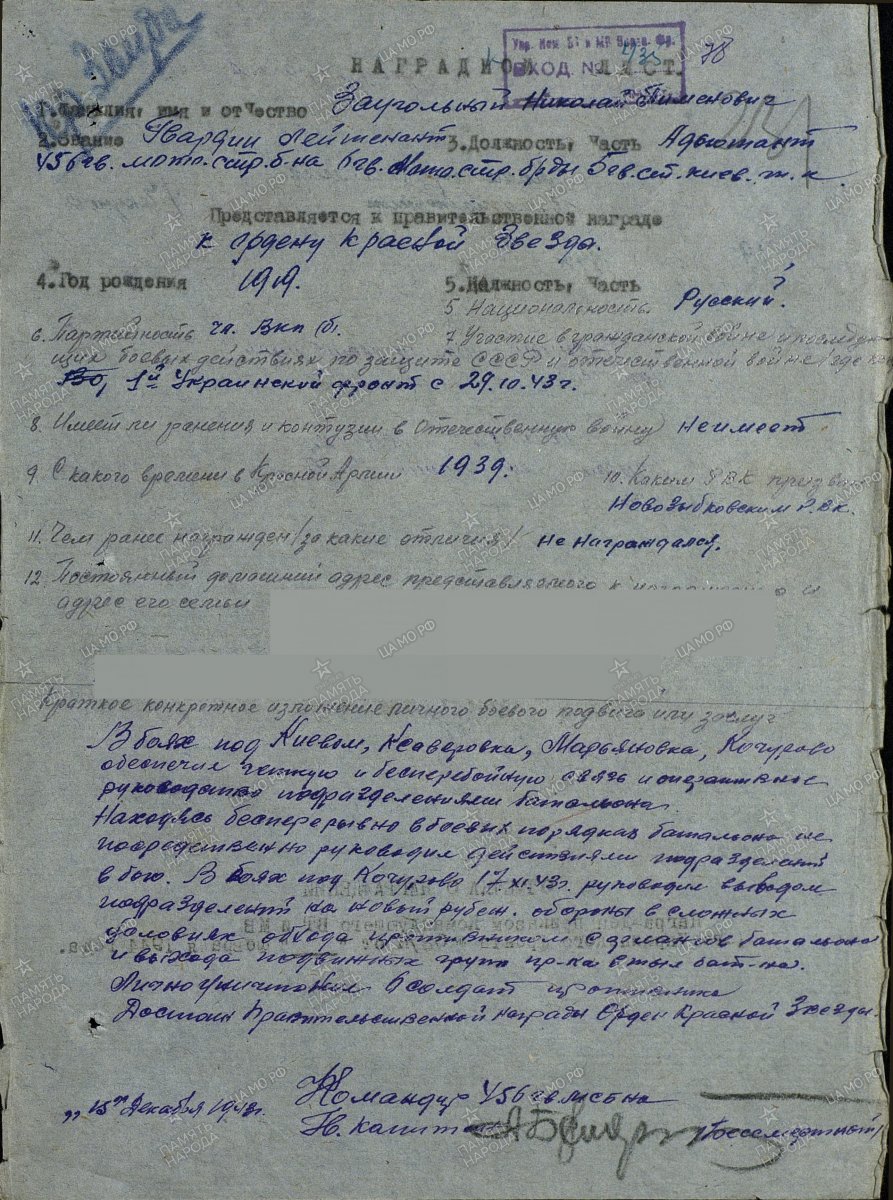 78
НАГРАДНОЙ ЛИСТ.
ВХОД №
1. Фамилия, имя и отчество Заугольный Николай Пименович
2. Звание Гвардии Лейтенант 3. Должность, Часть Адъютант
456 гв. мото.стр.б-на 6 гв. Мото.стр.бр-ды 5 гв. ст. киев. т.к.
Представляется к правительственной награде
к ордену Красной Звезды.
4. Год рождения 1919. 5. Должность, Часть
5 Национальность Русский.
6. Партийность чл. ВКП(б). 7. Участие в гражданской войне и последую-
щих боевых действиях по защите СССР и отечественной войне /где
1й Украинский фронт с 29.10.43 г.
8. Имеет ли ранения и контузии в Отечественную войну Не имеет
9. С какого времени в Красной Армии 1939. 10. Каким РВК призван
Новозыбковским Р.В.К.
11. Чем ранее награжден /за какие отличия/ Не награждался.
12. Постоянный домашний адрес представляемого к и
адрес его семьи
Краткое конкретное изложение личного боевого подвига или заслуг
В боях под Киевом, Ксаверовка, Марьяновка, Кочурово
обеспечил четкую и бесперебойную связь и оперативное
руководство подразделениями батальона.
Находясь бесперерывно в боевых порядках батальона не-
посредственно руководил действиями подразделений
в бою. В боях под Кочурово 17.XI.43г. руководил выводом
подразделений на новый рубеж обороны в сложных
условиях обхода противником с флангов батальона
и выхода подвижных групп пр-ка в тыл бат-на.
Лично уничтожил 6 солдат противника
Достоин Правительственной награды Орден Красной Звезды.
„15" Декабря 1943г. Командир 456 гв мсб-на
Гв. Капитан /Бессмертный/
ЦАМО.РФ
ПАМЯТЬ НАРОДА